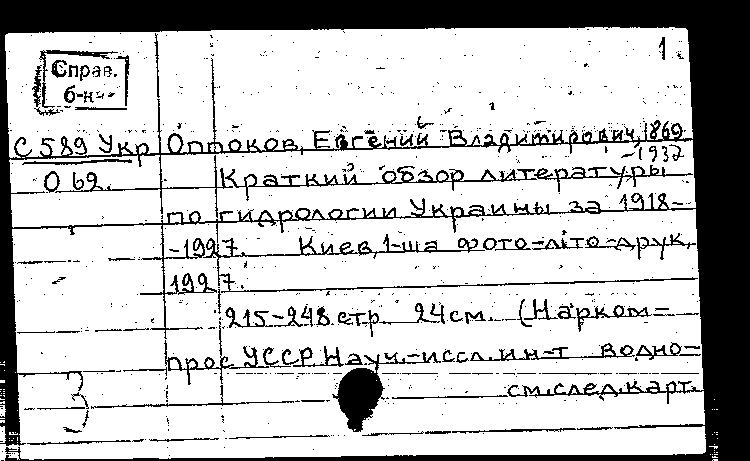 1.
Справ.
б-н
С 589 Укр Оппоков, Евгений Владимирович, 1869
-1937
О 62. Краткий обзор литературы
по гидрологии Украины за 1918-
-1927. Киев, 1-ша фото-літо-друк,
1927.
215-248 стр. 24 см. (Нарком-
прос УССР. Науч.-иссл. ин-т водно-
см. след. карт.
3